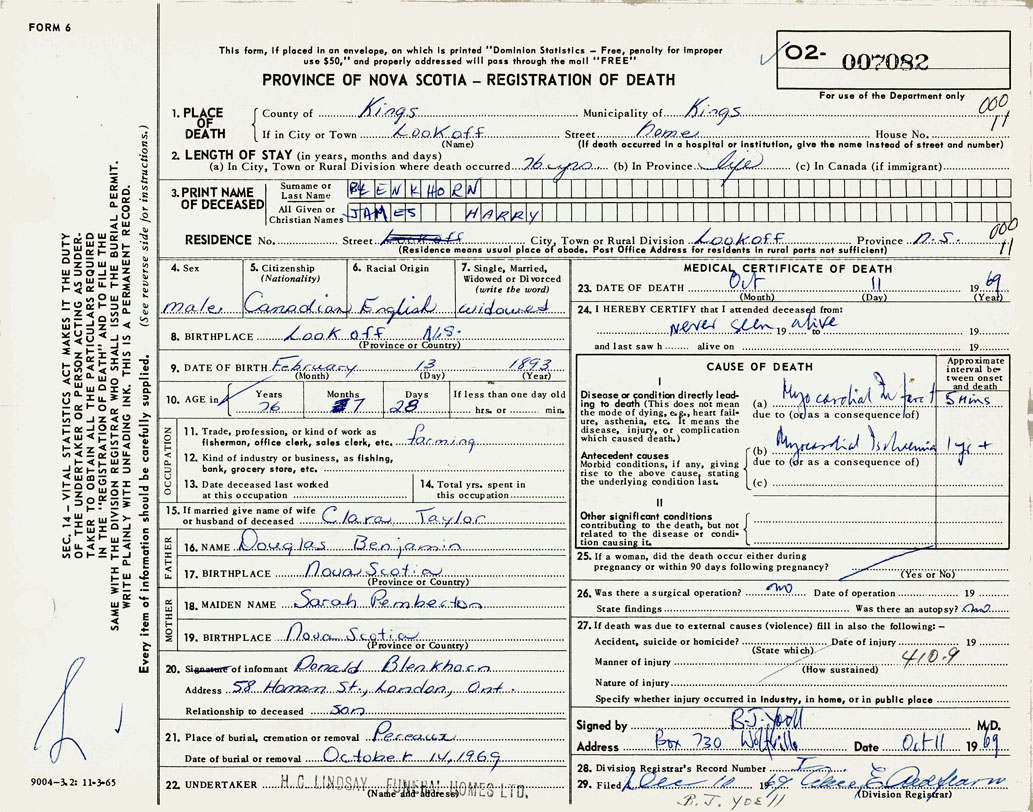 FORM 6
This form, if placed in an envelope, on which is printed "Dominion Statistics – Free, penalty for improper
use $50," and properly addressed will pass through the mail "FREE"
PROVINCE OF NOVA SCOTIA – REGISTRATION OF DEATH
O2- 007082
For use of the Department only
000
11
1. PLACE OF DEATH
County of Kings Municipality of Kings
If in City or Town Lookoff Street Home House No.
(Name) (If death occurred in a hospital or institution, give the name instead of street and number)
2. LENGTH OF STAY (in years, months and days)
(a) In City, Town or Rural Division where death occurred 76 yrs (b) In Province life (c) In Canada (if immigrant)
3. PRINT NAME OF DECEASED
Surname or Last Name BLENKHORN
All Given or Christian Names JAMES HARRY
RESIDENCE No. Street Lookoff City, Town or Rural Division Lookoff Province N.S.
(Residence means usual place of abode. Post Office Address for residents in rural parts not sufficient)
000
11
4. Sex
male
5. Citizenship
(Nationality)
Canadian
6. Racial Origin
English
7. Single, Married,
Widowed or Divorced
(write the word)
widowed
8. BIRTHPLACE Look off N.S.
(Province or Country)
9. DATE OF BIRTH February 13 1893
(Month) (Day) (Year)
10. AGE in Years Months Days If less than one day old
76 7 28 hrs. or min.
OCCUPATION
11. Trade, profession, or kind of work as
fisherman, office clerk, sales clerk, etc. farming
12. Kind of industry or business, as fishing,
bank, grocery store, etc.
13. Date deceased last worked
at this occupation
14. Total yrs. spent in
this occupation
15. If married give name of wife
or husband of deceased Clara Taylor
FATHER
16. NAME Douglas Benjamin
17. BIRTHPLACE Nova Scotia
(Province or Country)
MOTHER
18. MAIDEN NAME Sarah Pemberton
19. BIRTHPLACE Nova Scotia
(Province or Country)
20. Signature of informant Donald Blenkhorn
Address 58 St., London, Ont.
Relationship to deceased son
21. Place of burial, cremation or removal Pereaux
Date of burial or removal October 14, 1969
22. UNDERTAKER H. C. LINDSAY FUNERAL HOMES LTD.
(Name and address)
MEDICAL CERTIFICATE OF DEATH
23. DATE OF DEATH Oct 11 1969
(Month) (Day) (Year)
24. I HEREBY CERTIFY that I attended deceased from:
never seen 19 to alive 19
and last saw h alive on 19
CAUSE OF DEATH
Approximate interval between onset and death
I
Disease or condition directly leading to death (This does not mean
the mode of dying, e.g., heart failure, asthenia, etc. It means the
disease, injury, or complication
which caused death.)
(a) Myocardial Infarct 5 mins
due to (or as a consequence of)
Antecedent causes
Morbid conditions, if any, giving
rise to the above cause, stating
the underlying condition last.
(b) Myocardial Ischaemia 1 yr +
due to (or as a consequence of)
(c)
II
Other significant conditions
contributing to the death, but not
related to the disease or condition causing it.
25. If a woman, did the death occur either during
pregnancy or within 90 days following pregnancy?
(Yes or No)
26. Was there a surgical operation? no Date of operation 19
State findings Was there an autopsy? no
27. If death was due to external causes (violence) fill in also the following:–
Accident, suicide or homicide? Date of injury 19
(State which)
Manner of injury 410.9
(How sustained)
Nature of injury
Specify whether injury occurred in industry, in home, or in public place
Signed by B.J. Yoell M.D.
Address Box 730 Wolfville Date Oct 11 1969
28. Division Registrar's Record Number
29. Filed Dec 10 1969
(Division Registrar)
B. J. YOELL
SEC. 14 – VITAL STATISTICS ACT MAKES IT THE DUTY
OF THE UNDERTAKER OR PERSON ACTING AS UNDER-
TAKER TO OBTAIN ALL THE PARTICULARS REQUIRED
IN THE "REGISTRATION OF DEATH" AND TO FILE THE
SAME WITH THE DIVISION REGISTRAR WHO SHALL ISSUE THE BURIAL PERMIT.
WRITE PLAINLY WITH UNFADING INK. THIS IS A PERMANENT RECORD.
Every item of information should be carefully supplied. (See reverse side for instructions.)
9004–3.2: 11-3-65